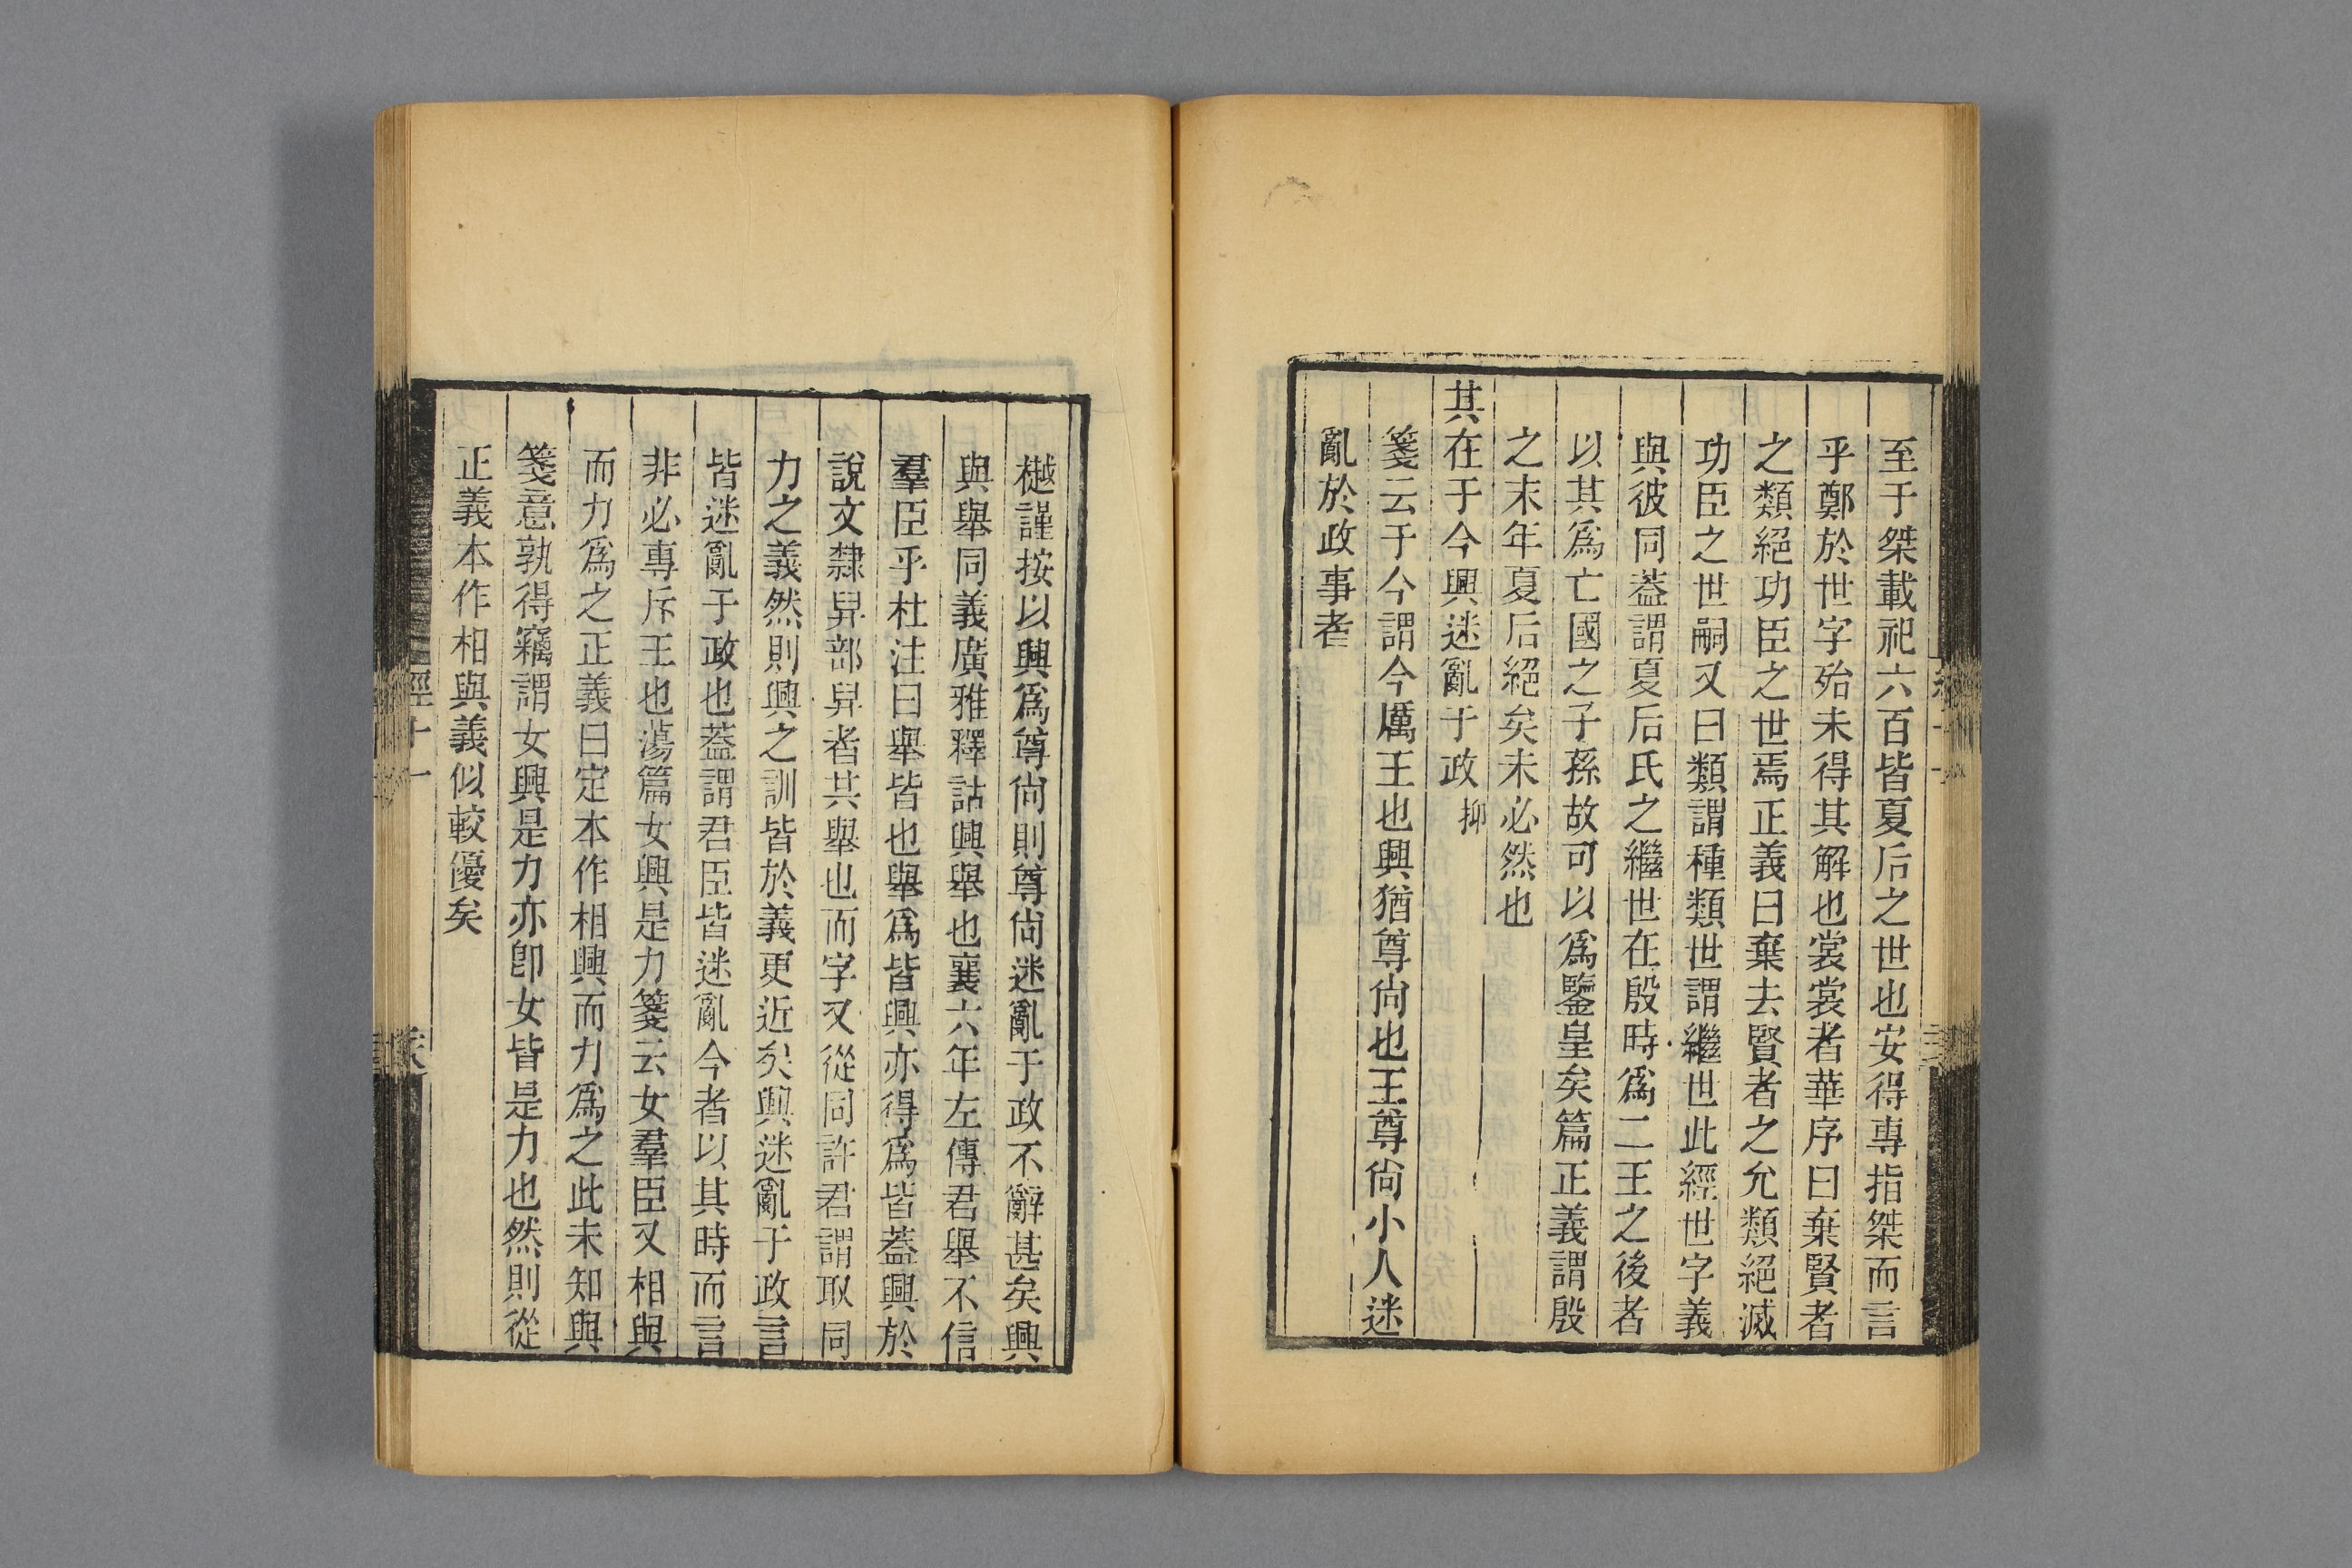 至于桀載祀六百皆夏后之世也安得專指桀而言
乎鄭於世字殆未得其解也裳裳者華序曰棄賢者
之類絕功臣之世焉正義曰棄去賢者之允類絕滅
功臣之世嗣又曰類謂種類世謂繼世此經世字義
與彼同葢謂夏后氏之繼世在殷時爲二王之後者
以其爲亡國之子孫故可以爲鑒皇矣篇正義謂殷
之末年夏后絕矣未必然也
其在于今興迷亂于政 抑
箋云于今謂今厲王也興猶尊尙也王尊尙小人迷
亂於政事者
樾謹按以興爲尊尙則尊尙迷亂于政不辭甚矣興
與舉同義廣雅釋詁興舉也襄六年左傳君舉不信
羣臣乎杜注曰舉皆也舉爲皆興亦得爲皆葢興於
說文隸舁部舁者共舉也而字又從同許君謂取同
力之義然則興之訓皆於義更近矣興迷亂于政言
皆迷亂于政也葢謂君臣皆迷亂今者以其時而言
非必專斥王也蕩篇女興是力箋云女羣臣又相與
而力爲之正義曰定本作相興而力爲之此未知與
箋意孰得竊謂女興是力亦卽女皆是力也然則從
正義本作相與義似較優矣
經十一